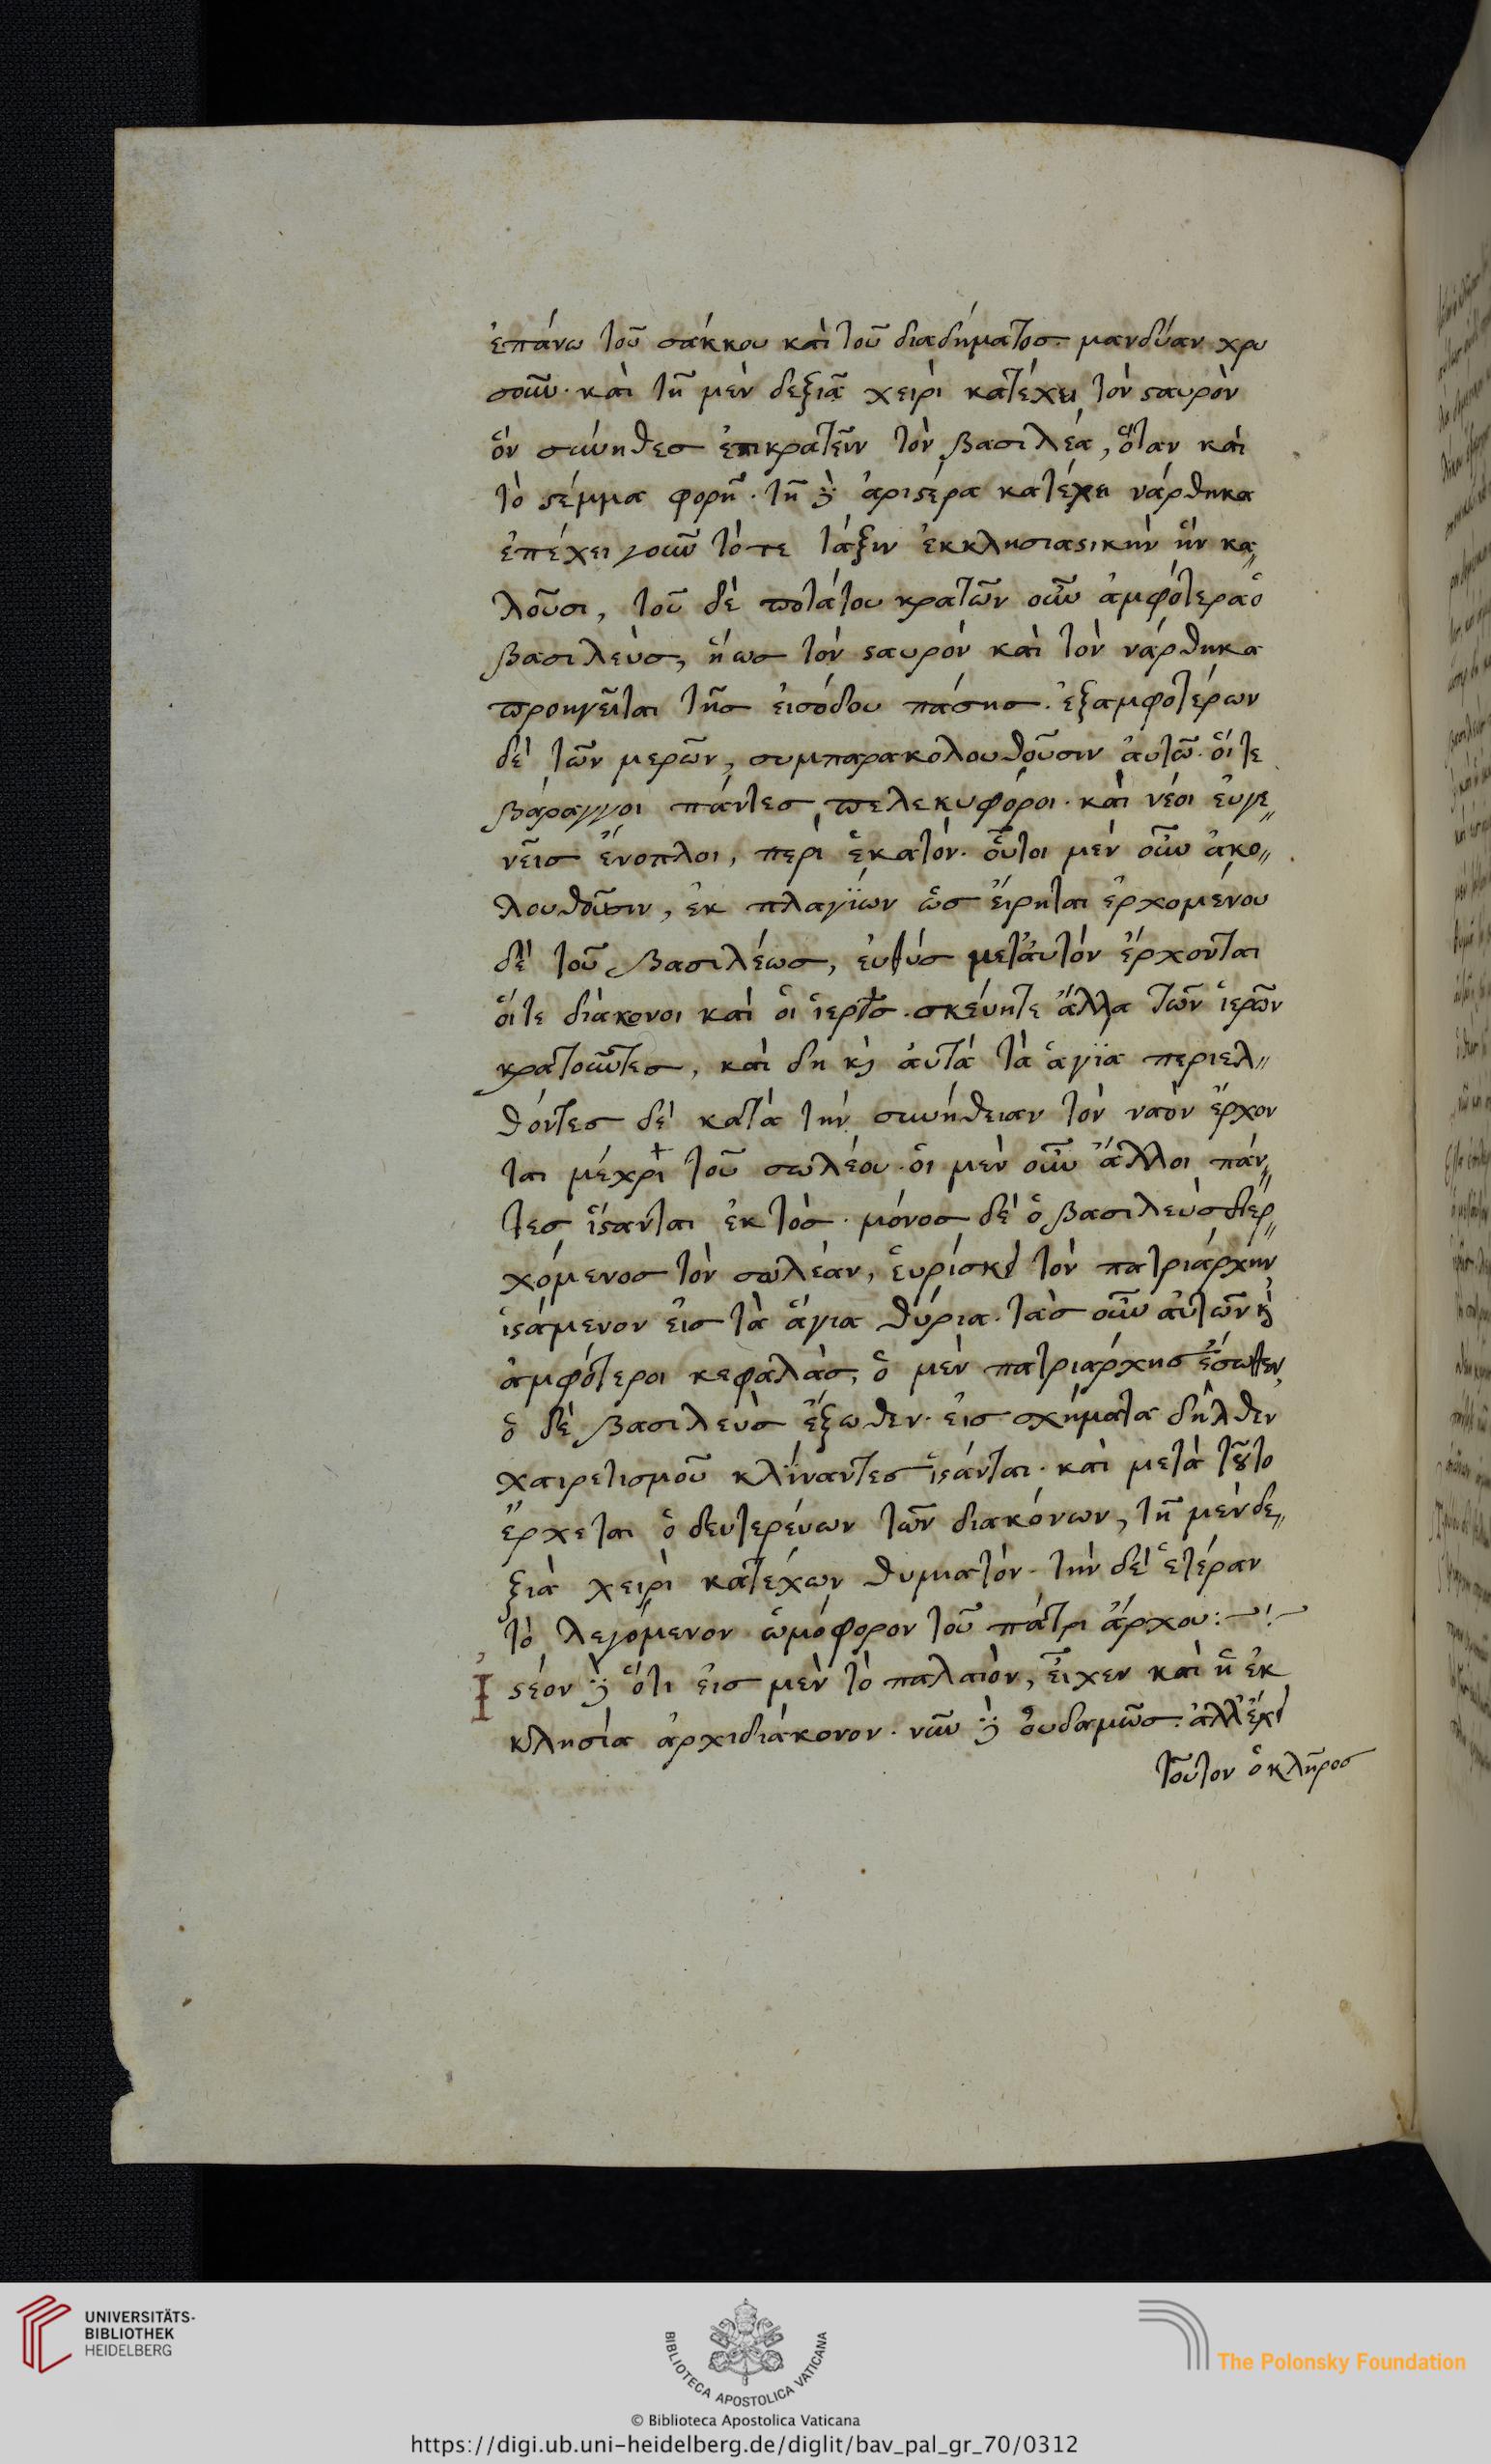 ἐπάνω τοῦ σάκκου καὶ τοῦ διαδήματος· μανδύαν χρυ
σοῦν· καὶ τῆ μὲν δεξιᾶ χειρὶ κατέχει τὸν σαυρὸν
ὃν σύνηθες ἐπικρατεῖν τὸν βασιλέα, ὅταν καὶ
τὸ στέμμα φορῆ· τῆ δὲ ἀριστέρα κατέχει νάρθηκα
ἐπέχει γοῦν τότε τάξιν ἐκκλησιαστικὴν ἣν κα〃
λοῦσι, τοῦ δὲ ποτάτου κρατῶν οὖν ἀμφότερα ὁ
βασιλεὺς, ἤως τὸν σταυρὸν καὶ τὸν νάρθηκα
προηγεῖται τῆς εἰσόδου πάσης· ἐξαμφοτέρων
δὲ τῶν μερῶν, συμπαρακολουθοῦσιν αὐτῶ· οἵ τε
βάραγγοι πάντες πελεκυφόροι· καὶ νέοι εὐγε〃
νεῖς ἔνοπλοι, περὶ ἑκατόν· οὗτοι μὲν οὖν ἀκο〃
λουθοῦσιν, ἐκ πλαγΐων ὡς εἴρηται ἐρχομένου
δὲ τοῦ βασιλέως, εὐθύς μεταὐτόν ἔρχονται
οἵτε διάκονοι καὶ οἱ ἱερεῖς· σκεύητε ἄλλα τῶν ἱερῶν
κρατοῦντες, καὶ δη κὶ αὐτὰ τὰ ἁγΐα περιελ〃
θόντες δὲ κατὰ τὴν συνήθειαν τὸν ναὸν ἔρχον
ται μέχρι τοῦ σωλέου· οἱ μὲν οὖν ἄλλοι πάν〃
τες ἵστανται ἐκτὸς· μόνος δὲ ὁ βασιλεὺς διερ〃
χόμενος τὸν σωλέαν, εὑρίσκει τὸν πατριάρχην
ἱστάμενον εἰς τὰ ἅγια θύρια· τὰς οὖν αὐτῶν κὶ
ἀμφότεροι κεφαλὰς, ὁ μὲν πατριάρχης ἔσωθεν,
ὁ δὲ βασιλεὺς ἔξωθεν· εἰς σχήματα δήλθεν
χαιρετισμοῦ κλΐναντες ἱστάνται· καὶ μετὰ τοῦτο
ἔρχεται ὁ δευτερεύων τῶν διακόνων, τῆ μὲν δε〃
ξιὰ χειρὶ κατέχων θυμιατὸν· τὴν δὲ ἑτέραν
τὸ λεγόμενον ὡμόφορον τοῦ πάτρι άρχου:
Ἰστέον δὲ ὅτι εἰς μὲν τὸ παλαιὸν, εἶχεν καὶ ἡ ἐκ
κλησία ἀρχιδιάκονον· νῦν δὲ οὐδαμῶς· ἀλλ' ἔχει
τοῦτον ὁ κλῆρος
UNIVERSITÄTS-
BIBLIOTHEK
HEIDELBERG
BIBLIOTECA APOSTOLICA VATICANA
The Polonsky Foundation
© Biblioteca Apostolica Vaticana
https://digi.ub.uni-heidelberg.de/diglit/bav_pal_gr_70/0312